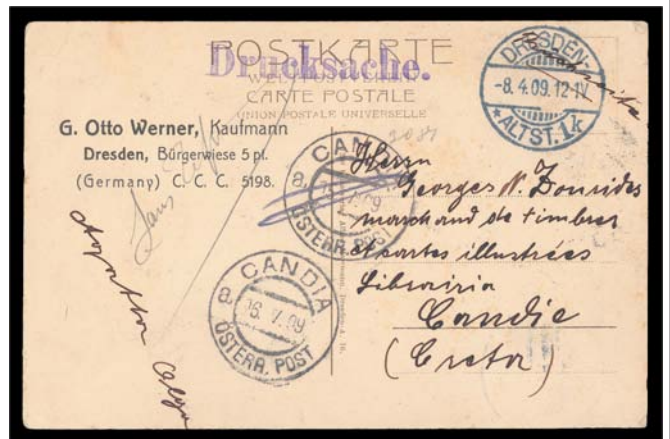 POSTKARTE
Drucksache.
WELTPOSTVEREIN
CARTE POSTALE
UNION POSTALE UNIVERSELLE
DRESDEN-
-8.4.09.12-1V
*ALTST.1k
G. Otto Werner, Kaufmann
Dresden, Bürgerwiese 5 pl.
(Germany) C. C. C. 5198.
CANDIA
a
ÖSTERR. POST
Herrn
Georges N. Zourides
marchand de timbres
et cartes illustrées
Librairia
Candie
(Creta)
CANDIA
a
16.V.09
ÖSTERR. POST